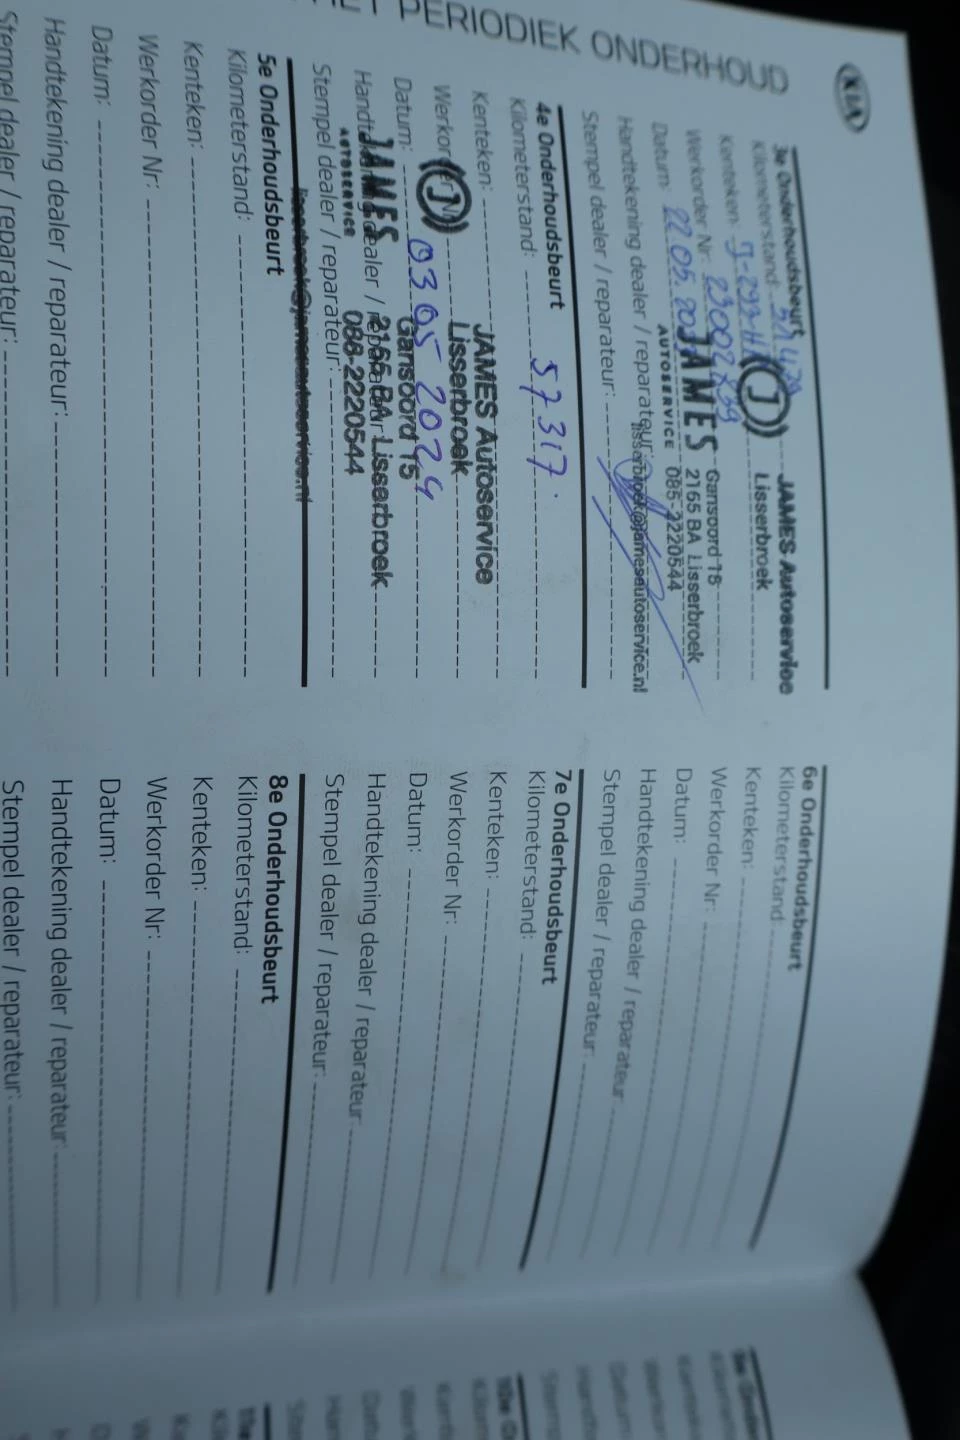 PERIODIEK ONDERHOUD
KIA
3e Onderhoudsbeurt
Kilometerstand:
Kenteken:
Werkorder Nr: 23002899
Datum: 22.05.
Handtekening dealer / reparateur:
Stempel dealer / reparateur:
JAMES Autoservice
Lisserbroek
JAMES
AUTOSERVICE
Gansoord 15
2165 BA Lisserbroek
085-2220544
lisserbroek@jamesautoservice.nl
4e Onderhoudsbeurt
Kilometerstand: 57317.
Kenteken:
Datum: 03 05 2024
Handtekening dealer / reparateur:
Stempel dealer / reparateur:
JAMES Autoservice
Lisserbroek
JAMES
AUTOSERVICE
Gansoord 15
2165 BA Lisserbroek
088-2220544
lisserbroek@jamesautoservice.nl
5e Onderhoudsbeurt
Kilometerstand:
Kenteken:
Werkorder Nr:
Datum:
Handtekening dealer / reparateur:
Stempel dealer / reparateur:
6e Onderhoudsbeurt
Kilometerstand:
Kenteken:
Werkorder Nr:
Datum:
Handtekening dealer / reparateur:
Stempel dealer / reparateur:
7e Onderhoudsbeurt
Kilometerstand:
Kenteken:
Werkorder Nr:
Datum:
Handtekening dealer / reparateur:
Stempel dealer / reparateur:
8e Onderhoudsbeurt
Kilometerstand:
Kenteken:
Werkorder Nr:
Datum:
Handtekening dealer / reparateur:
Stempel dealer / reparateur: